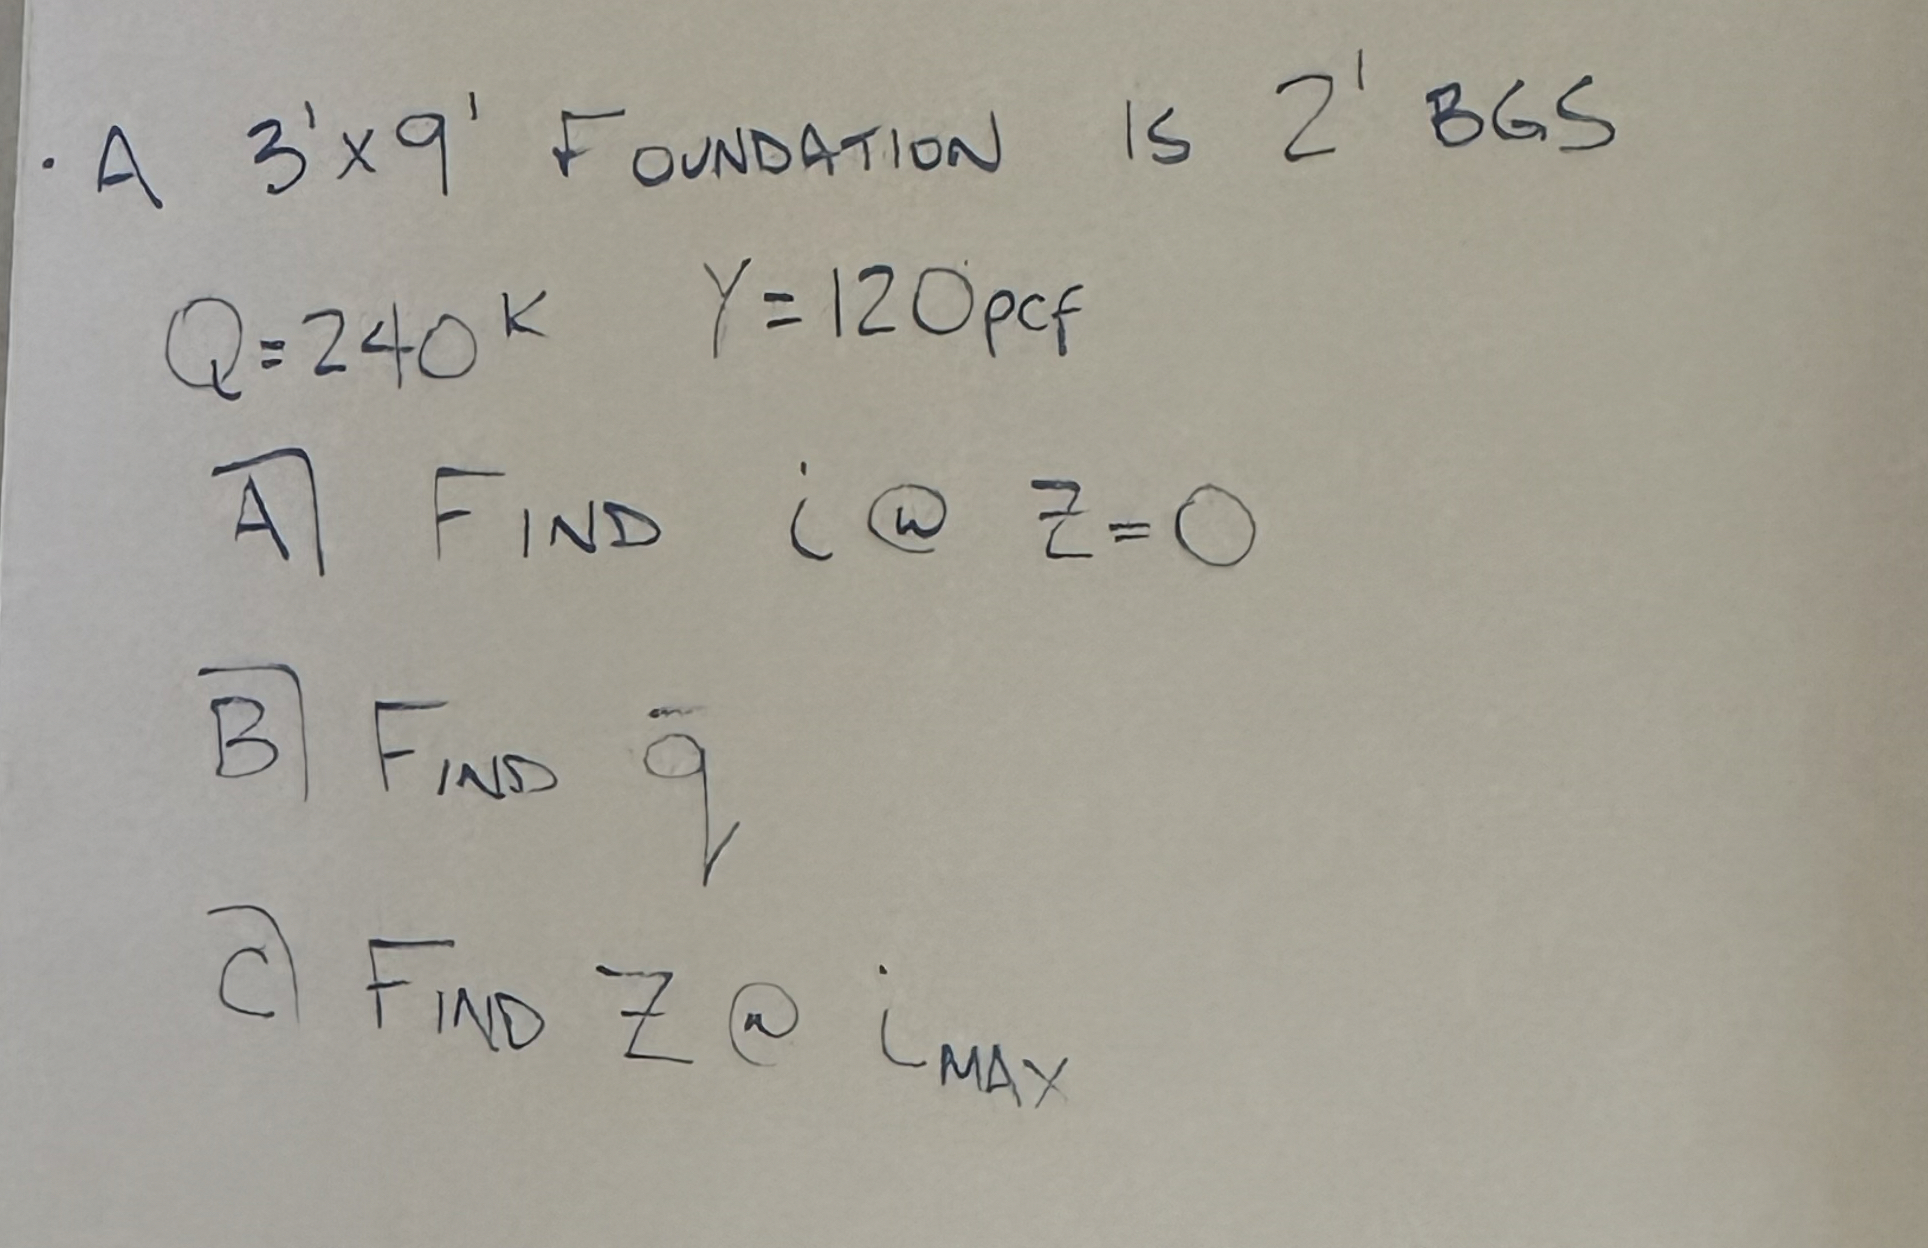 · A 3'x9' FOUNDATION IS 2' BGS
Q=240K γ=120pcf
A) FIND i @ Z=0
B) FIND q̄
C) FIND Z @ iMAX